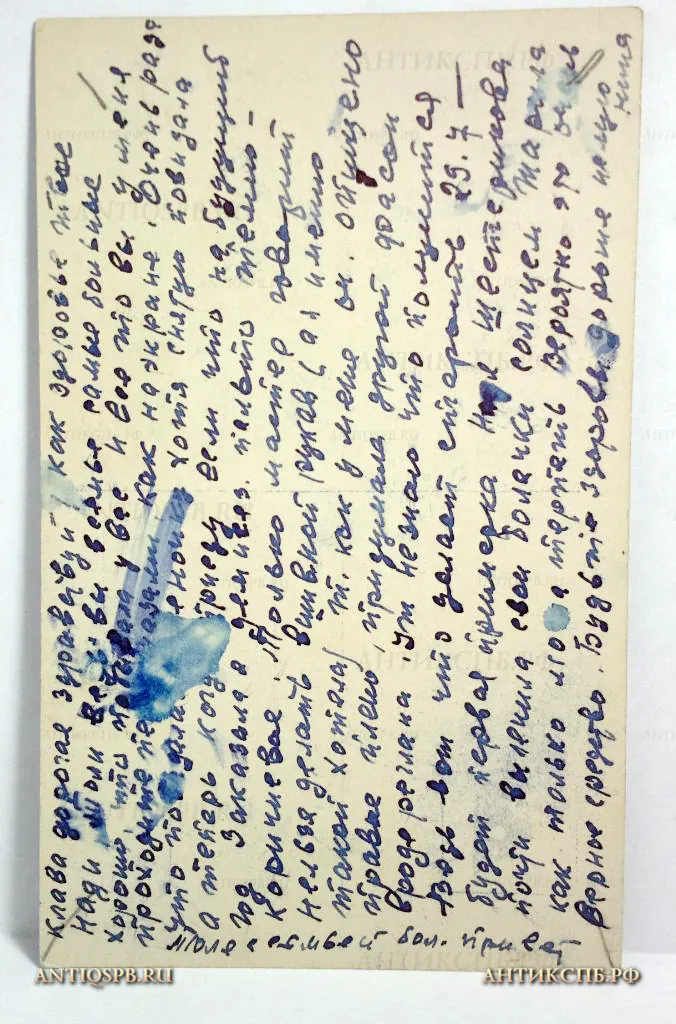 Клава дорогая здравствуй как здоровье твое
Нади Толи вы верны самые больные
хорошо, что побывала у вас и Вся то вы у меня
проходите как на экране. Очень рада
что по хотя снятую повидала
а теперь когда приеду если что на будущий
год Заказала я демисез. пальто темно-
коричневое. Только мастер говорит
нельзя делать вшивной рукав (а я именно
такой хотела) т. как у меня оч. опущено
правое плечо, придумала другой фасон
вроде реглана Уж незнаю что получится
Ведь вот что делает старость 29.7 —
будет первая примерка Н. Шестерикова
почти вылечила свои болячки солнцем Жарила
как только мо а терпеть Вероятно это очень
Верное средство. Будьте здоровы дороже целую
Нина
Толе с семьей бол. привет
ANTIQSPB.RU
АНТИКСПБ.РФ